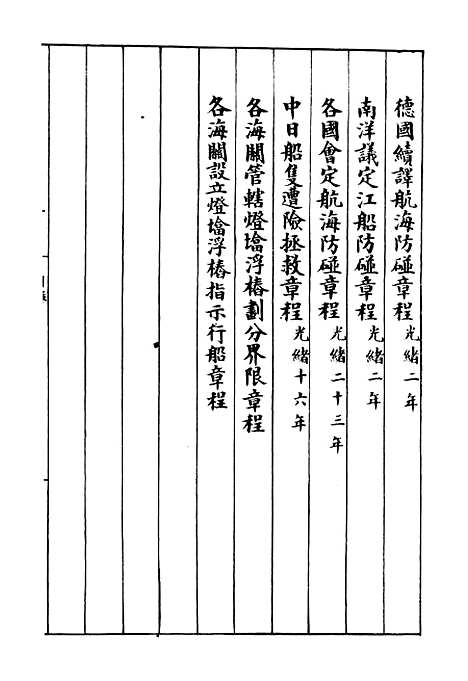 德國續譯航海防碰章程光緒二年
南洋議定江船防碰章程光緒二年
各國會定航海防碰章程光緒二十三年
中日船隻遭險拯救章程光緒十六年
各海關管轄燈墖浮樁劃分界限章程
各海關設立燈墖浮樁指示行船章程